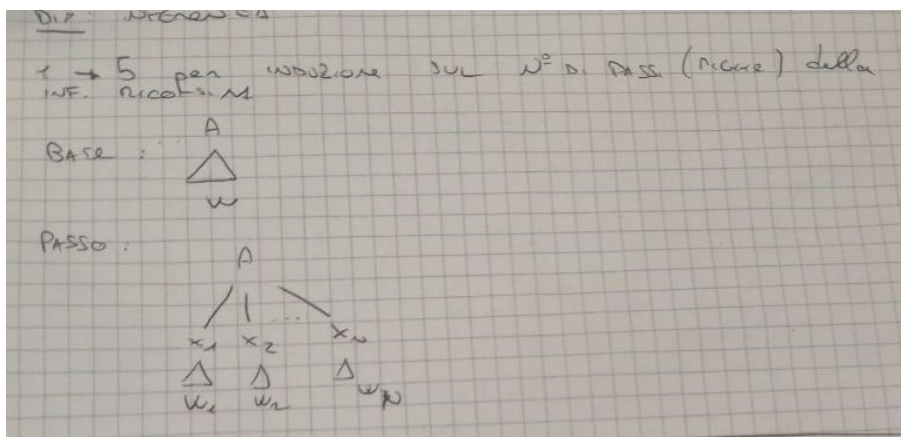 1 → 5 per INDUZIONE SUL N° DI PASSI (RIGHE) della
INF. RICORSIVA
A
BASE :
w
PASSO :
A
...
x1 x2 xN
w1 w2 wN